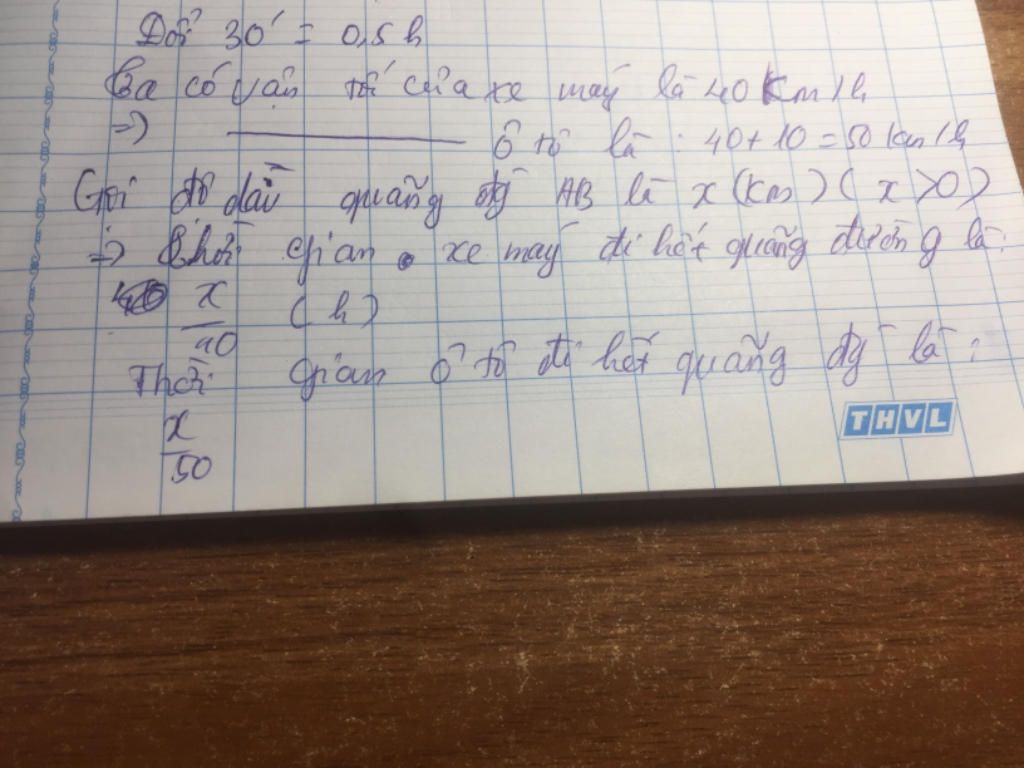 Đổi 30' = 0,5 h
Ta có vận tốc của xe máy là 40 Km/h
=> ——— ô tô là : 40 + 10 = 50 km/h
Gọi độ dài quãng đg AB là x (Km) ( x > 0 )
=> thời gian xe máy đi hết quãng đường là :
x/40 (h)
Thời gian ô tô đi hết quãng đg là :
x/50
THVL